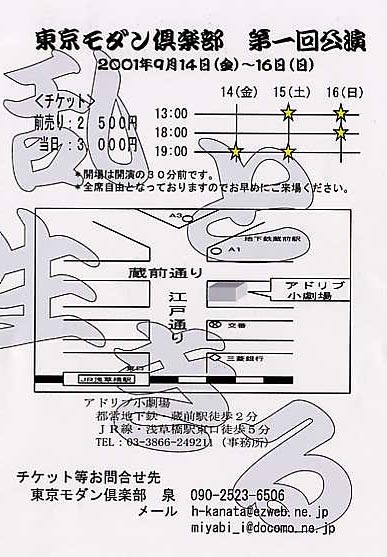 東京モダン倶楽部　第一回公演
2001年9月14日(金)～16日(日)
<チケット>
前売り：2 500円
当日：3,000円
14(金) 15(土) 16(日)
13:00
18:00
19:00
*開場は開演の30分前です。
*全席自由となっておりますのでお早めにご来場ください。
A3
地下鉄蔵前駅
A1
蔵前通り
江戸通り
アドリブ
小劇場
交番
三菱銀行
東口
JR浅草橋駅
アドリブ小劇場
都営地下鉄・蔵前駅徒歩2分
JR線・浅草橋駅東口徒歩5分
TEL：03-3866-249211（事務所）
チケット等お問合せ先
東京モダン倶楽部　泉　090-2523-6506
メール　h-kanata@ezweb.ne.jp
miyabi_i@docomo.ne.jp